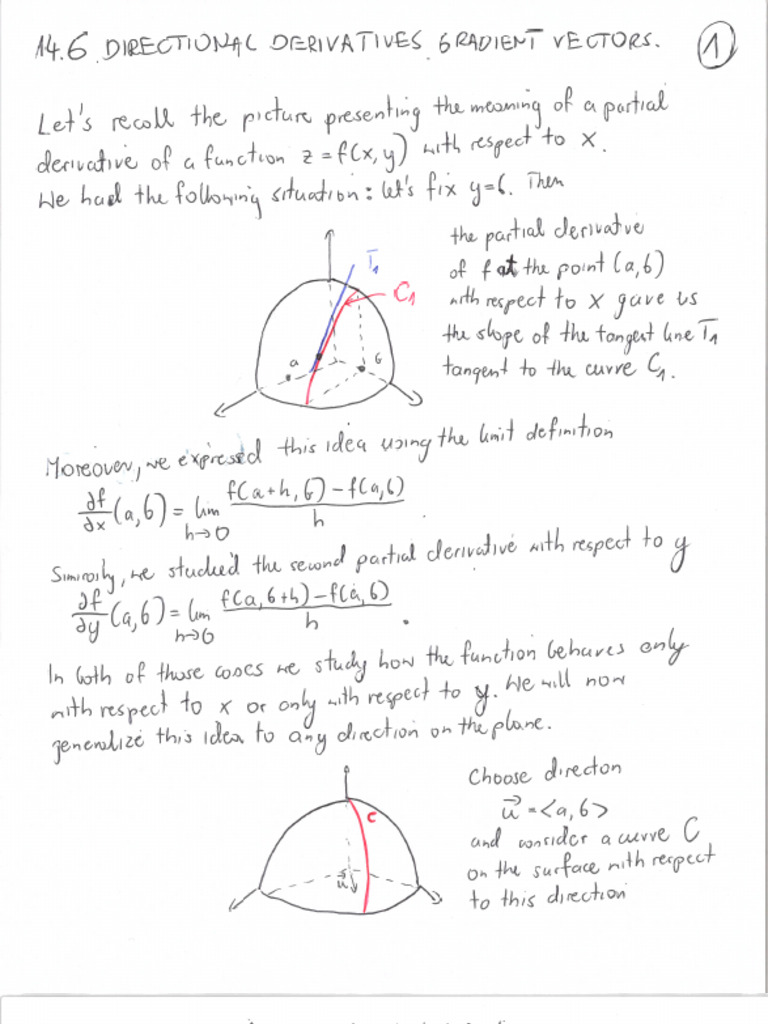 14.6 DIRECTIONAL DERIVATIVES. GRADIENT VECTORS. 1
Let's recall the picture presenting the meaning of a partial
derivative of a function z = f(x, y) with respect to x.
We had the following situation: let's fix y=b. Then
the partial derivative
of f at the point (a, b)
with respect to x gave us
the slope of the tangent line T1
tangent to the curve C1.
T1
C1
a
b
Moreover, we expressed this idea using the limit definition
∂f/∂x (a, b) = lim h→0 (f(a+h, b) − f(a, b))/h .
Similarly, we studied the second partial derivative with respect to y
∂f/∂y (a, b) = lim h→0 (f(a, b+h) − f(a, b))/h .
In both of those cases we study how the function behaves only
with respect to x or only with respect to y. We will now
generalize this idea to any direction on the plane.
Choose directon
u⃗ = <a, b>
and consider a curve C
on the surface with respect
to this direction
C
u⃗